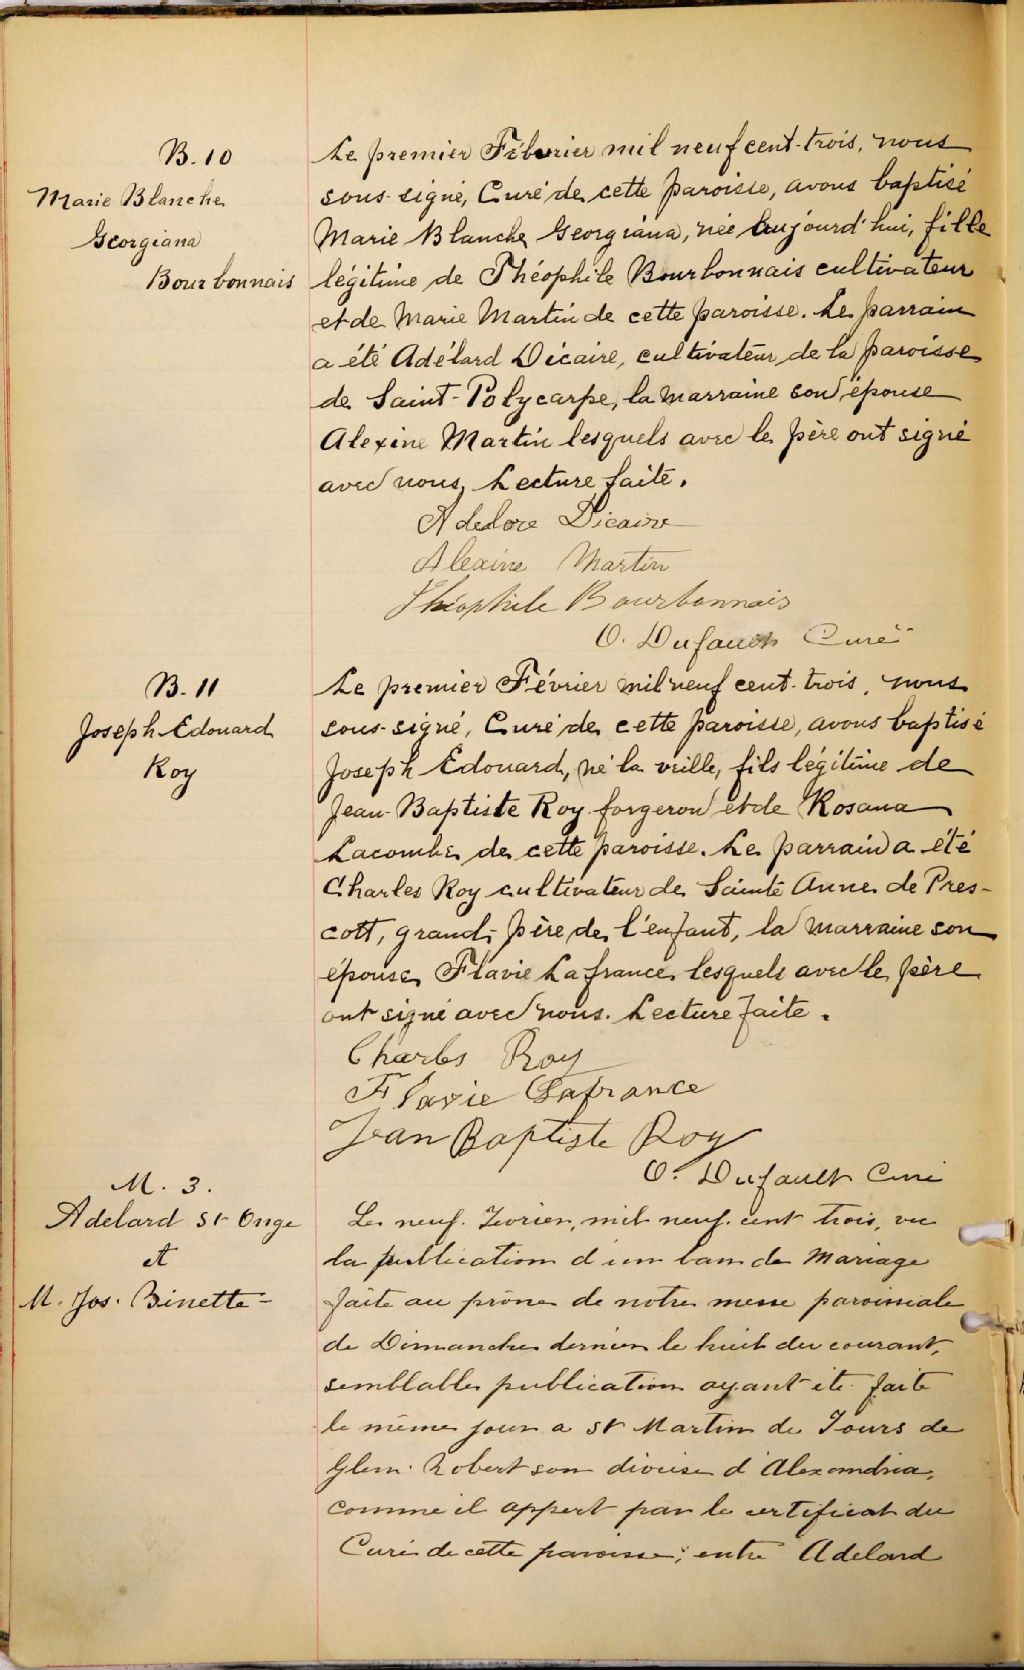 B. 10
Marie Blanche
Georgiana
Bourbonnais
Le premier Février mil neuf cent-trois, nous
sous-signé, Curé de cette paroisse, avons baptisé
Marie Blanche Georgiana, née aujourd'hui, fille
légitime de Théophile Bourbonnais cultivateur
et de Marie Martin de cette paroisse. Le parrain
a été Adélard Dicaire, cultivateur de la paroisse
de Saint-Polycarpe, la marraine son épouse
Alexine Martin lesquels avec le père ont signé
avec nous, Lecture faite.
Adelore Dicaire
Alexine Martin
Théophile Bourbonnais
O. Dufault Curé
B. 11
Joseph Edouard
Roy
Le premier Février mil neuf cent-trois, nous
sous-signé, Curé de cette paroisse, avons baptisé
Joseph Edouard, né la veille, fils légitime de
Jean-Baptiste Roy forgeron et de Rosana
Lacombe de cette paroisse. Le parrain a été
Charles Roy cultivateur de Sainte Anne de Pres-
cott, grand-père de l'enfant, la marraine son
épouse Flavie Lafrance lesquels avec le père
ont signé avec nous. Lecture faite.
Charles Roy
Flavie Lafrance
Jean Baptiste Roy
O. Dufault Curé
M. 3.
Adelard St Onge
et
M. Jos. Binette-
Le neuf Fevrier, mil neuf cent trois, vu
la publication d'un ban de Mariage
faite au prône de notre messe paroissiale
de Dimanche dernier le huit du courant,
semblable publication ayant été faite
le même jour a St Martin de Tours de
Glen-Robertson diocèse d'Alexandria,
comme il appert par le certificat du
Curé de cette paroisse; entre Adelard